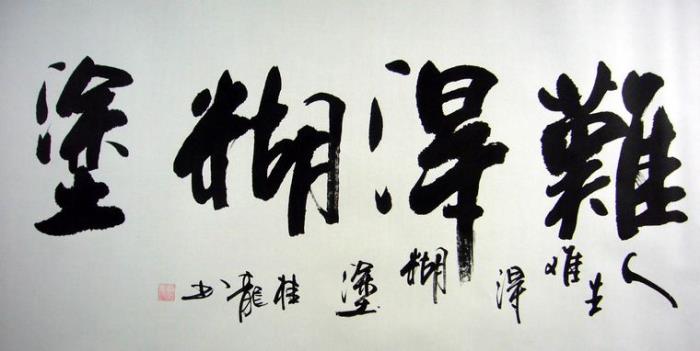 難得糊塗
人生难得糊塗 桂龍书